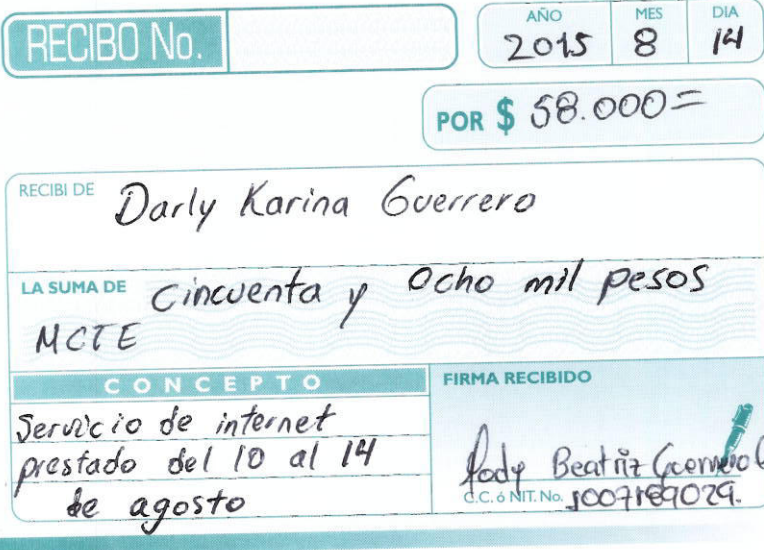 RECIBO No.
AÑO MES DIA
2015 8 14
POR $ 58.000=
RECIBI DE Darly Karina Guerrero
LA SUMA DE Cincuenta y Ocho mil pesos
MCTE
CONCEPTO
Servicio de internet
prestado del 10 al 14
de agosto
FIRMA RECIBIDO
Beatriz Guerrero
C.C. ó NIT. No. 1007189029.